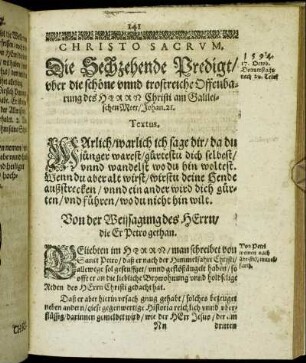 141
CHRISTO SACRVM,
Die Sechzehende Predigt/
vber die schöne vnnd trostreiche Offenba-
rung des HERRN Christi am Galilei-
schen Meer/ Johan. 21.
1594.
17. Octo.
Donnerstags
nach 20. Trinit.
Textus.
WArlich/ warlich ich sage dir/ da du
jünger warest/ gürtestu dich selbest/
vnnd wandelst wo du hin woltest.
Wenn du aber alt wirst/ wirstu deine Hende
außstrecken/ vnnd ein ander wird dich gür-
ten/ vnd führen/ wo du nicht hin wilt.
Von der Weissagung des HErrn/
die Er Petro gethan.
GEliebten im HERRN/ man schreibet von
Sanct Petro/ daß er nach der Himmelfart Christi/
allewege sol geseufftzet/ vnd
so offt er an die liebliche Beywohnung vnd holdselige
Reden des HErrn Christi gedacht hat.
Von Petri
weinen nach
Daß er aber hierzu vrsach gnug gehabt/ solches bezeuget
neben andern/ diese gegenwertige Historia reichlich vnnd vber-
flüssig/ darinnen gemeldet wird/ wie der HErr Jesus/ der am
Nn
dritten